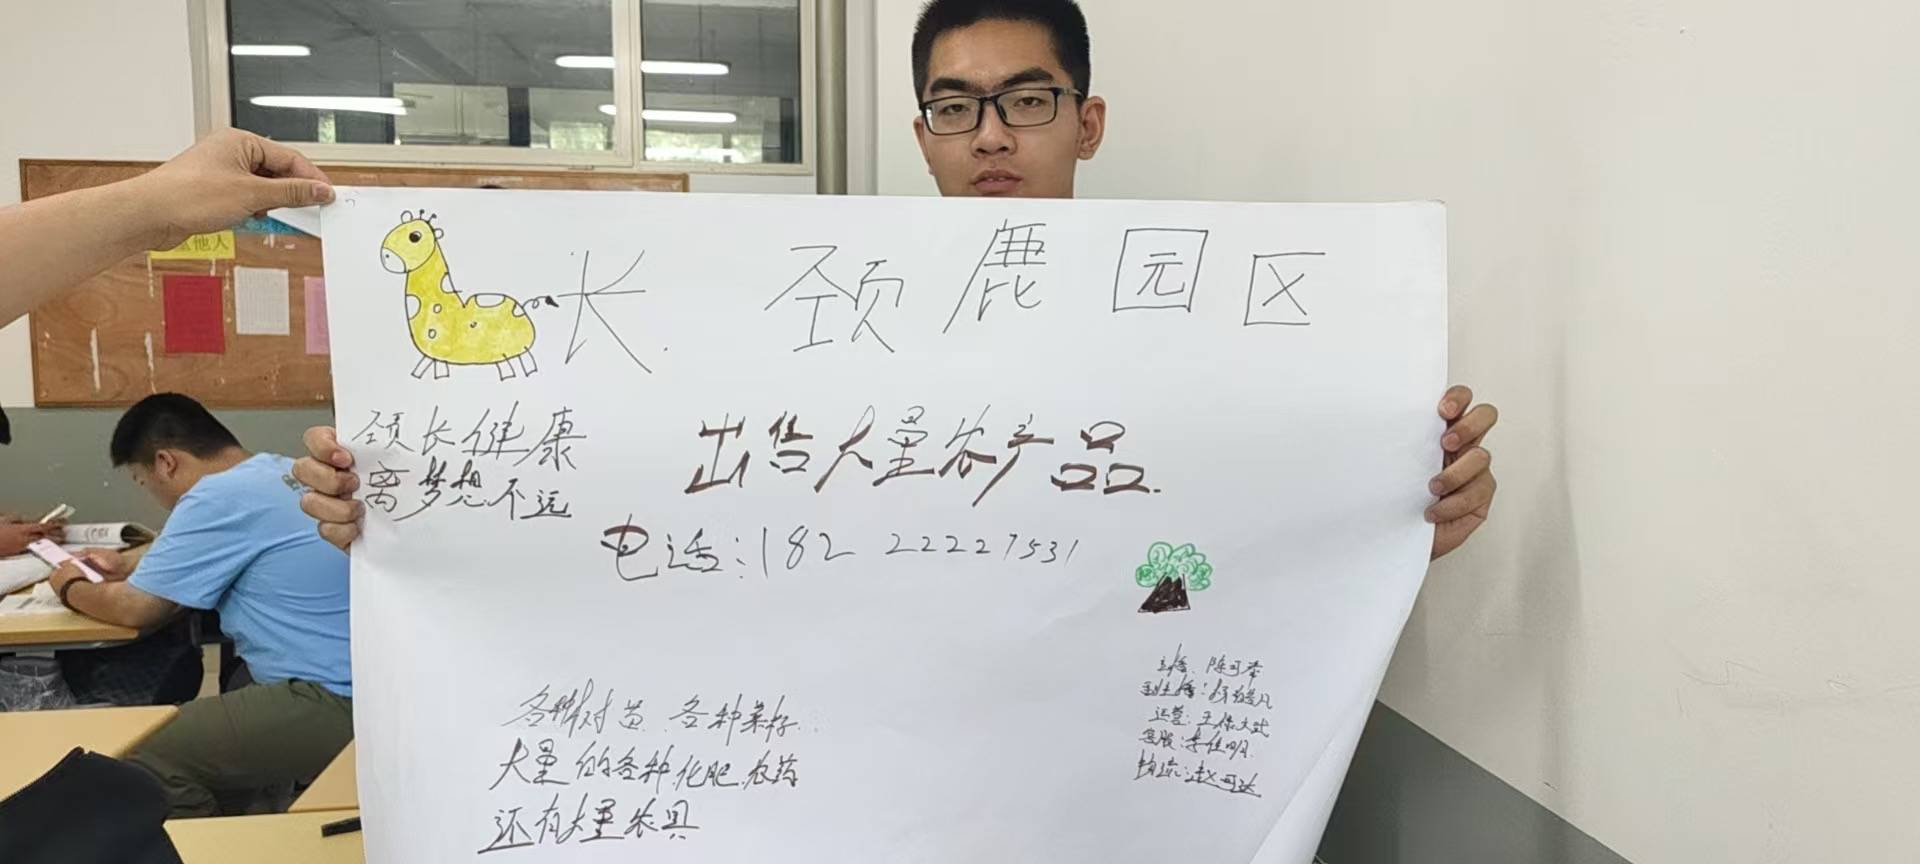 他人
长颈鹿园区
颈长健康
离梦想不远
出售大量农产品.
电话:182 22227531
各种树苗、各种菜籽
大量的各种化肥、农药
还有大量农具
主播:陈可
副主播:杨皓凡
运营:王保文武
客服:李佳明
物流:赵可达